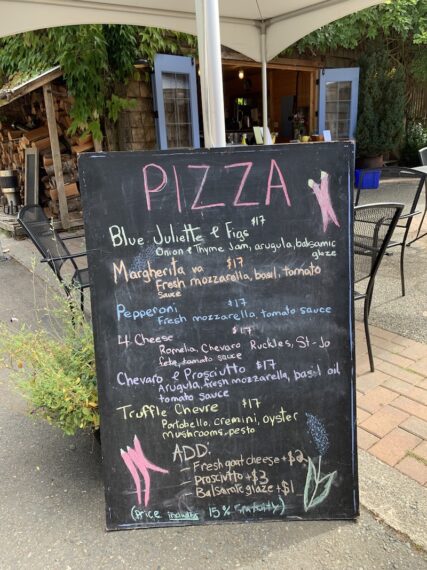 PIZZA
Blue Juliette & Figs $17
Onion & Thyme Jam, arugula, balsamic
glaze
Margherita va $17
Fresh mozzarella, basil, tomato
sauce
Pepperoni $17
Fresh mozzarella, tomato sauce
4 Cheese $17
Romelia, Chevaro Ruckles, St-Jo
feta, tomato sauce
Chevaro & Prosciutto $17
Arugula, fresh mozzarella, basil oil
tomato sauce
Truffle Chevre $17
Portobello, cremini, oyster
mushrooms, pesto
ADD:
- Fresh goat cheese +$2
- Prosciutto +$3
- Balsamic glaze +$1
(Price includes 15% Gratuity)